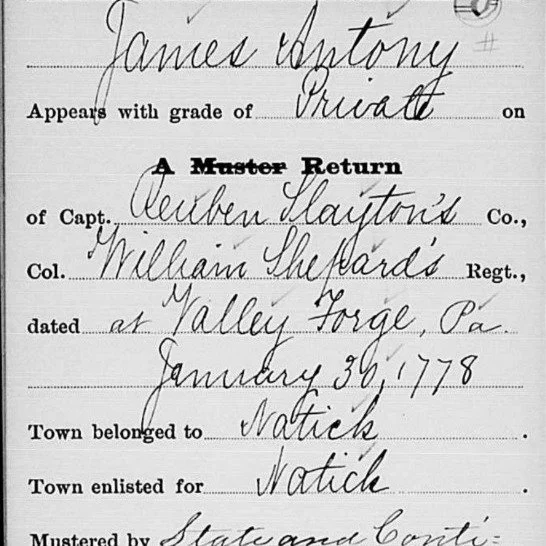 James Antony
Appears with grade of Private on
A Muster Return
of Capt. Reuben Slayton's Co.,
Col. William Shepard's Regt.,
dated at Valley Forge, Pa.
January 30, 1778
Town belonged to Natick.
Town enlisted for Natick.
Mustered by State and Conti=